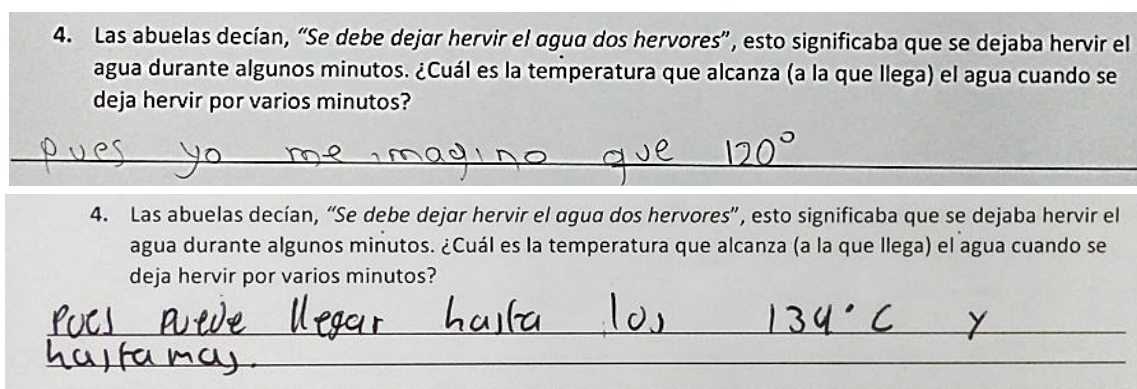 4. Las abuelas decían, “Se debe dejar hervir el agua dos hervores”, esto significaba que se dejaba hervir el
agua durante algunos minutos. ¿Cuál es la temperatura que alcanza (a la que llega) el agua cuando se
deja hervir por varios minutos?
pues yo me imagino que 120°
4. Las abuelas decían, “Se debe dejar hervir el agua dos hervores”, esto significaba que se dejaba hervir el
agua durante algunos minutos. ¿Cuál es la temperatura que alcanza (a la que llega) el agua cuando se
deja hervir por varios minutos?
Pues puede llegar hasta los 134°C y
hasta mas.